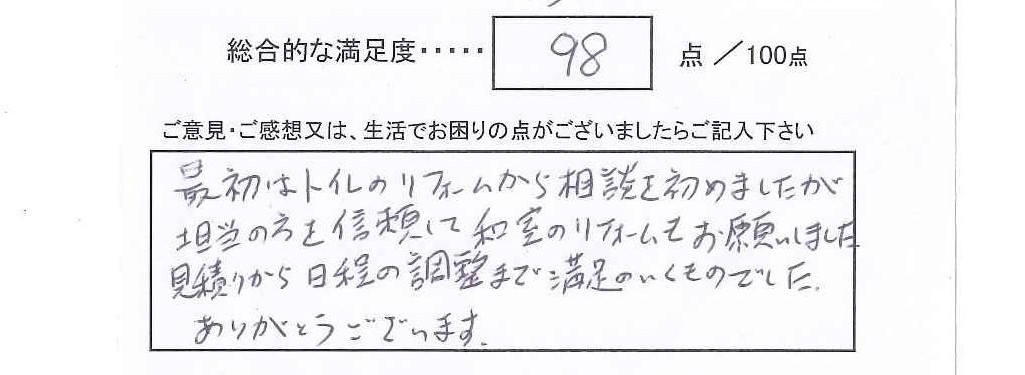 総合的な満足度・・・・・ 98 点 ／100点
ご意見・ご感想又は、生活でお困りの点がございましたらご記入下さい
最初はトイレのリフォームから相談を初めましたが
担当の方を信頼して和室のリフォームもお願いしました
見積りから日程の調整まで満足のいくものでした.
ありがとうございます.